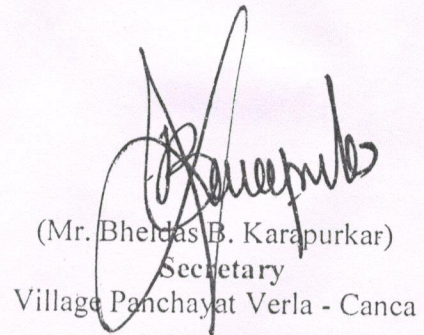 (Mr. Bheldas B. Karapurkar)
Secretary
Village Panchayat Verla - Canca